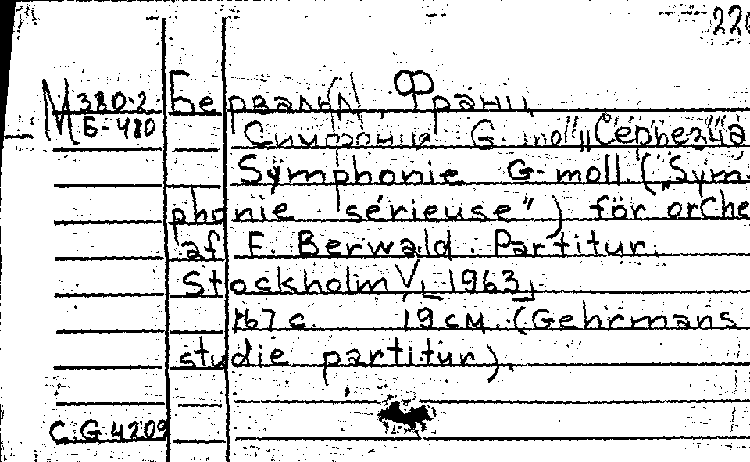 220
М 380-2 Бервальд, Франц
Б-480 Симфония G-moll „Серьезна
Symphonie G-moll („Sym-
phonie sérieuse") för orche
af F. Berwald. Partitur.
Stockholm, 1963,
167 с. 19 см. (Gehrmans
studie partitur).
C.G 4209